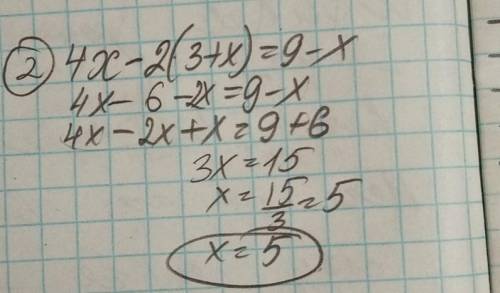 ② 4x - 2(3+x) = 9 - x
4x - 6 - 2x = 9 - x
4x - 2x + x = 9 + 6
3x = 15
x = 15/3 = 5
x = 5